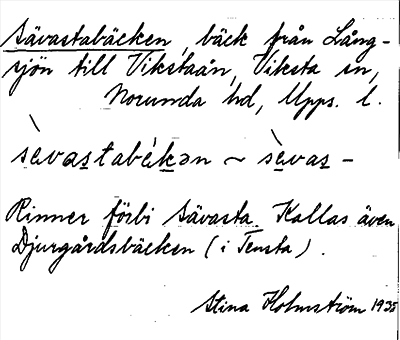 Sävastabäcken, bäck från Lång-
sjön till Vikstaån, Viksta sn,
Norunda hd, Upps. l.
sèvastabékən ~ sèvas -
Rinner förbi Sävasta. Kallas även
Djurgårdsbäcken (i Tensta).
Stina Holmström 1935